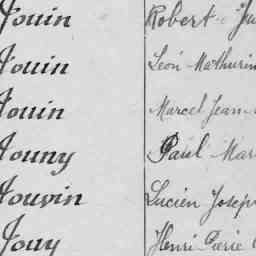 Jouin Robert
Jouin Léon Mathurin
Jouin Marcel Jean
Jouny Paul
Jouvin Lucien Joseph
Jouy Henri Pierre